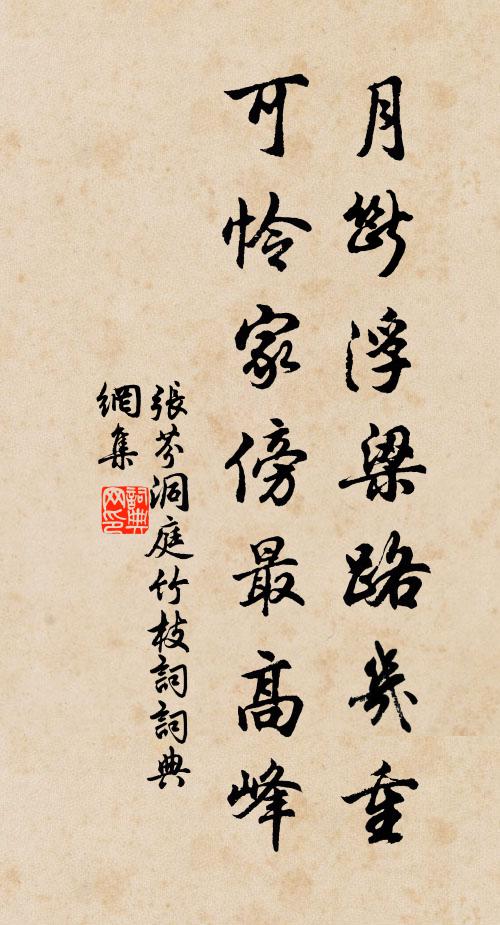 月斷浮梁路幾重
可憐家傍最高峰
張芬洞庭竹枝詞詞典
網集
詞典
网印